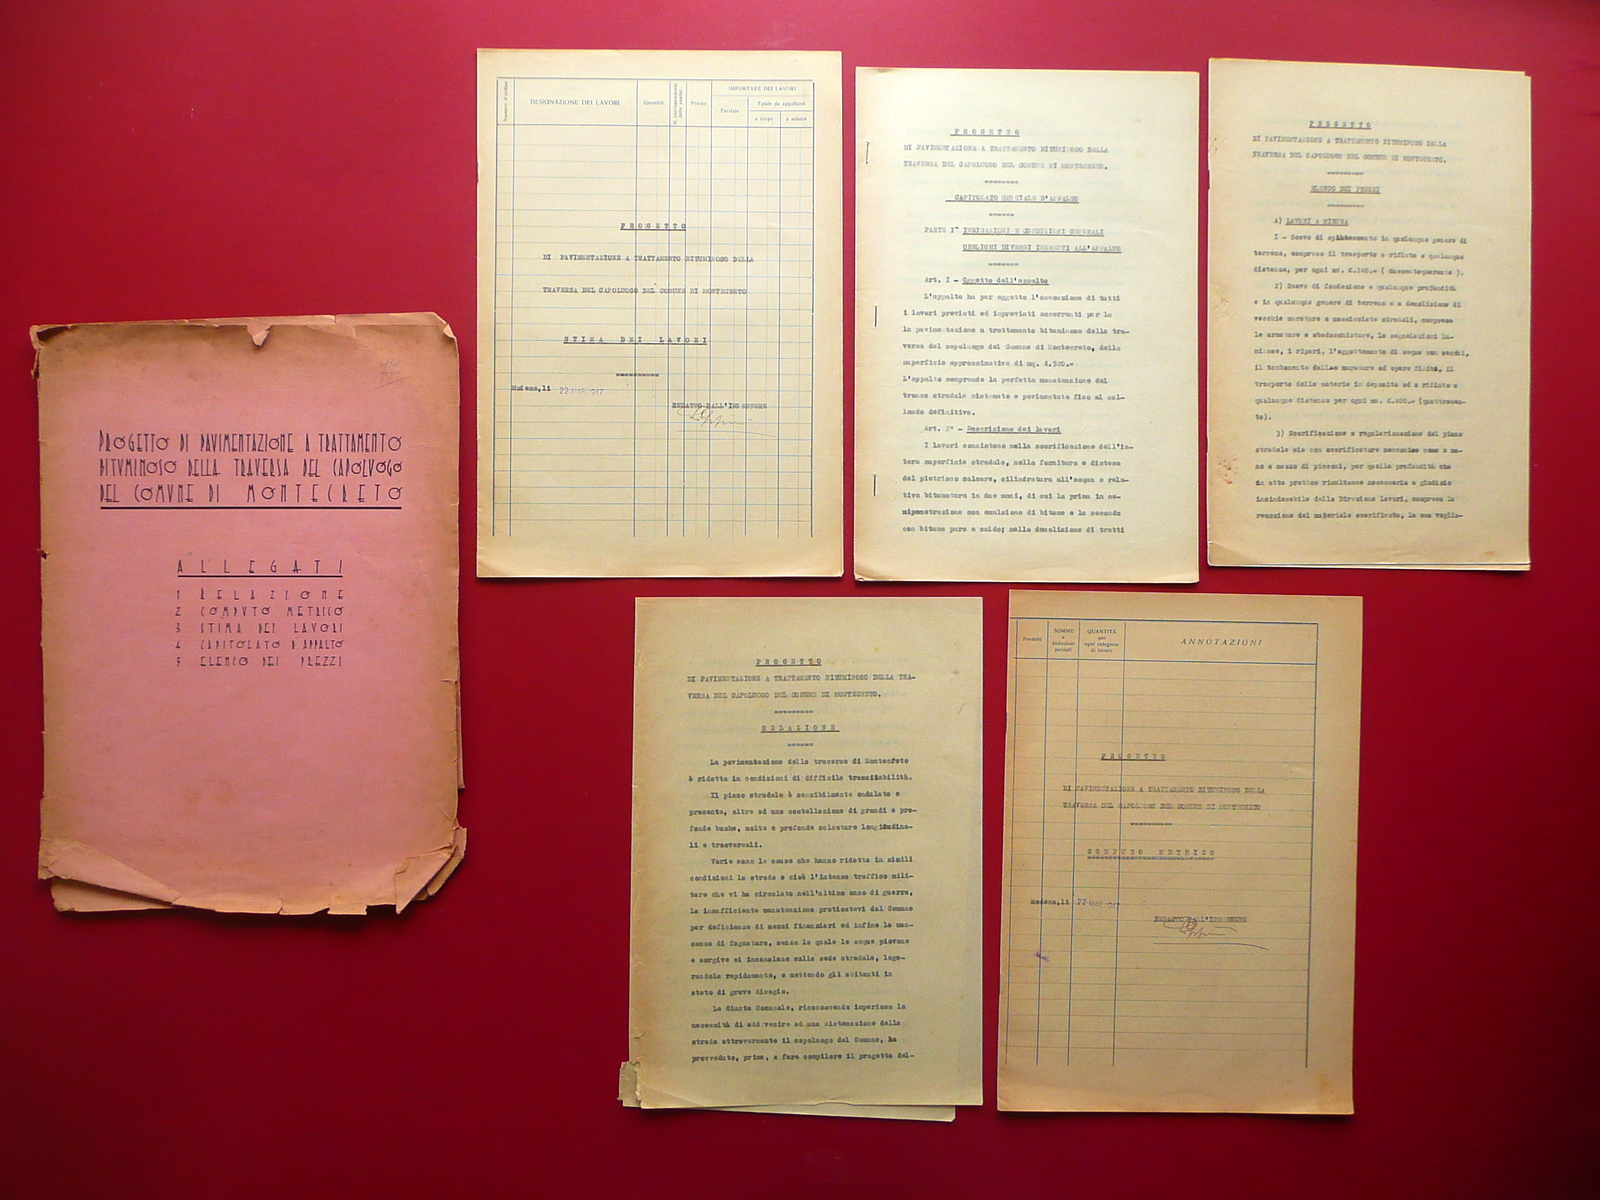 PROGETTO DI PAVIMENTAZIONE A TRATTAMENTO
BITUMINOSO DELLA TRAVERSA DEL CAPOLVOGO
DEL COMVNE DI MONTECRETO
ALLEGATI
1 RELAZIONE
2 COMPVTO METRICO
3 STIMA DEI LAVORI
4 CAPITOLATO D'APPALTO
5 ELENCO DEI PREZZI
Numero d'ordine
DESIGNAZIONE DEI LAVORI
Quantità
Prezzo
IMPORTARE DEI LAVORI
Parziale
Totale da appaltarsi
a corpo
a misura
PROGETTO
DI PAVIMENTAZIONE A TRATTAMENTO BITUMINOSO DELLA
TRAVERSA DEL CAPOLUOGO DEL COMUNE DI MONTECRETO
STIMA DEI LAVORI
Modena, li 22 MAR. 1947
REDATTO DALL'INGEGNERE
PROGETTO
DI PAVIMENTAZIONE A TRATTAMENTO BITUMINOSO DELLA
TRAVERSA DEL CAPOLUOGO DEL COMUNE DI MONTECRETO.
CAPITOLATO SPECIALE D'APPALTO
PARTE I^ INDICAZIONI E CONDIZIONI GENERALI
OBBLIGHI DIVERSI INERENTI ALL'APPALTO
Art. I - Oggetto dell'appalto
L'appalto ha per oggetto l'esecuzione di tutti
i lavori previsti ed imprevisti occorrenti per la
la pavimentazione a trattamento bituminoso della tra-
versa del capoluogo del Comune di Montecreto, della
superficie approssimativa di mq. 4.520.=
L'appalto comprende la perfetta manutenzione del
tronco stradale sistemato e pavimentato fino al col-
laudo definitivo.
Art. 2° - Descrizione dei lavori
I lavori consistono nella scarificazione dell'in-
tera superficie stradale, nella fornitura e distesa
del pietrisco calcare, cilindratura all'acqua e rela-
tiva bitumatura in due mani, di cui la prima in se-
mipenetrazione con emulsione di bitume e la seconda
con bitume puro a caldo; nella demolizione di tratti
PROGETTO
DI PAVIMENTAZIONE A TRATTAMENTO BITUMINOSO DELLA
TRAVERSA DEL CAPOLUOGO DEL COMUNE DI MONTECRETO.
ELENCO DEI PREZZI
A) LAVORI A MISURA
I - Scavo di splateamento in qualunque genere di
terreno, compreso il trasporto a rifiuto a qualunque
distanza, per ogni mc.
2) Scavo di fondazione a qualunque profondità
e in qualunque genere di terreno e a demolizione di
vecchie murature e massicciate stradali, comprese
le armature e sbadacchiature, le segnalazioni lu-
minose, i ripari, l'aggottamento di acqua con secchi,
il tombamento delle murature ad opere finite, il
trasporto delle materie in deposito ed a rifiuto a
qualunque distanza per ogni mc. £.400.= (quattrocen-
to).
3) Scarificazione e regolarizzazione del piano
stradale sia con scarificatore meccanico come a ma-
no a mezzo di picconi, per quella profondità che
in atto pratico risultasse necessaria a giudizio
insindacabile della Direzione Lavori, compresa la
remozione del materiale scarificato, la sua vaglia-
PROGETTO
DI PAVIMENTAZIONE A TRATTAMENTO BITUMINOSO DELLA TRA-
VERSA DEL CAPOLUOGO DEL COMUNE DI MONTECRETO.
RELAZIONE
La pavimentazione della traversa di Montecreto
è ridotta in condizioni di difficile transitabilità.
Il piano stradale è sensibilmente ondulato e
presenta, oltre ad una costellazione di grandi e pro-
fonde buche, molte e profonde solcature longitudina-
li e trasversali.
Varie sono le cause che hanno ridotto in simili
condizioni la strada e cioè l'intenso traffico mili-
tare che vi ha circolato nell'ultimo anno di guerra,
la insufficiente manutenzione praticatavi dal Comune
per deficienza di mezzi finanziari ed infine la man-
canza di fognatura, senza la quale le acque piovane
e sorgive si incanalano sulla sede stradale, logo-
randola rapidamente, e mettendo gli abitanti in
stato di grave disagio.
La Giunta Comunale, riconoscendo imperiosa la
necessità di addivenire ad una sistemazione della
strada attraversante il capoluogo del Comune, ha
provveduto, prima, a fare compilare il progetto del-
Prodotti
SOMME e deduzioni parziali
QUANTITÀ per ogni categoria di lavoro
ANNOTAZIONI
PROGETTO
DI PAVIMENTAZIONE A TRATTAMENTO BITUMINOSO DELLA
TRAVERSA DEL CAPOLUOGO DEL COMUNE DI MONTECRETO
COMPUTO METRICO
Modena, li 22 MAR. 1947
REDATTO DALL'INGEGNERE